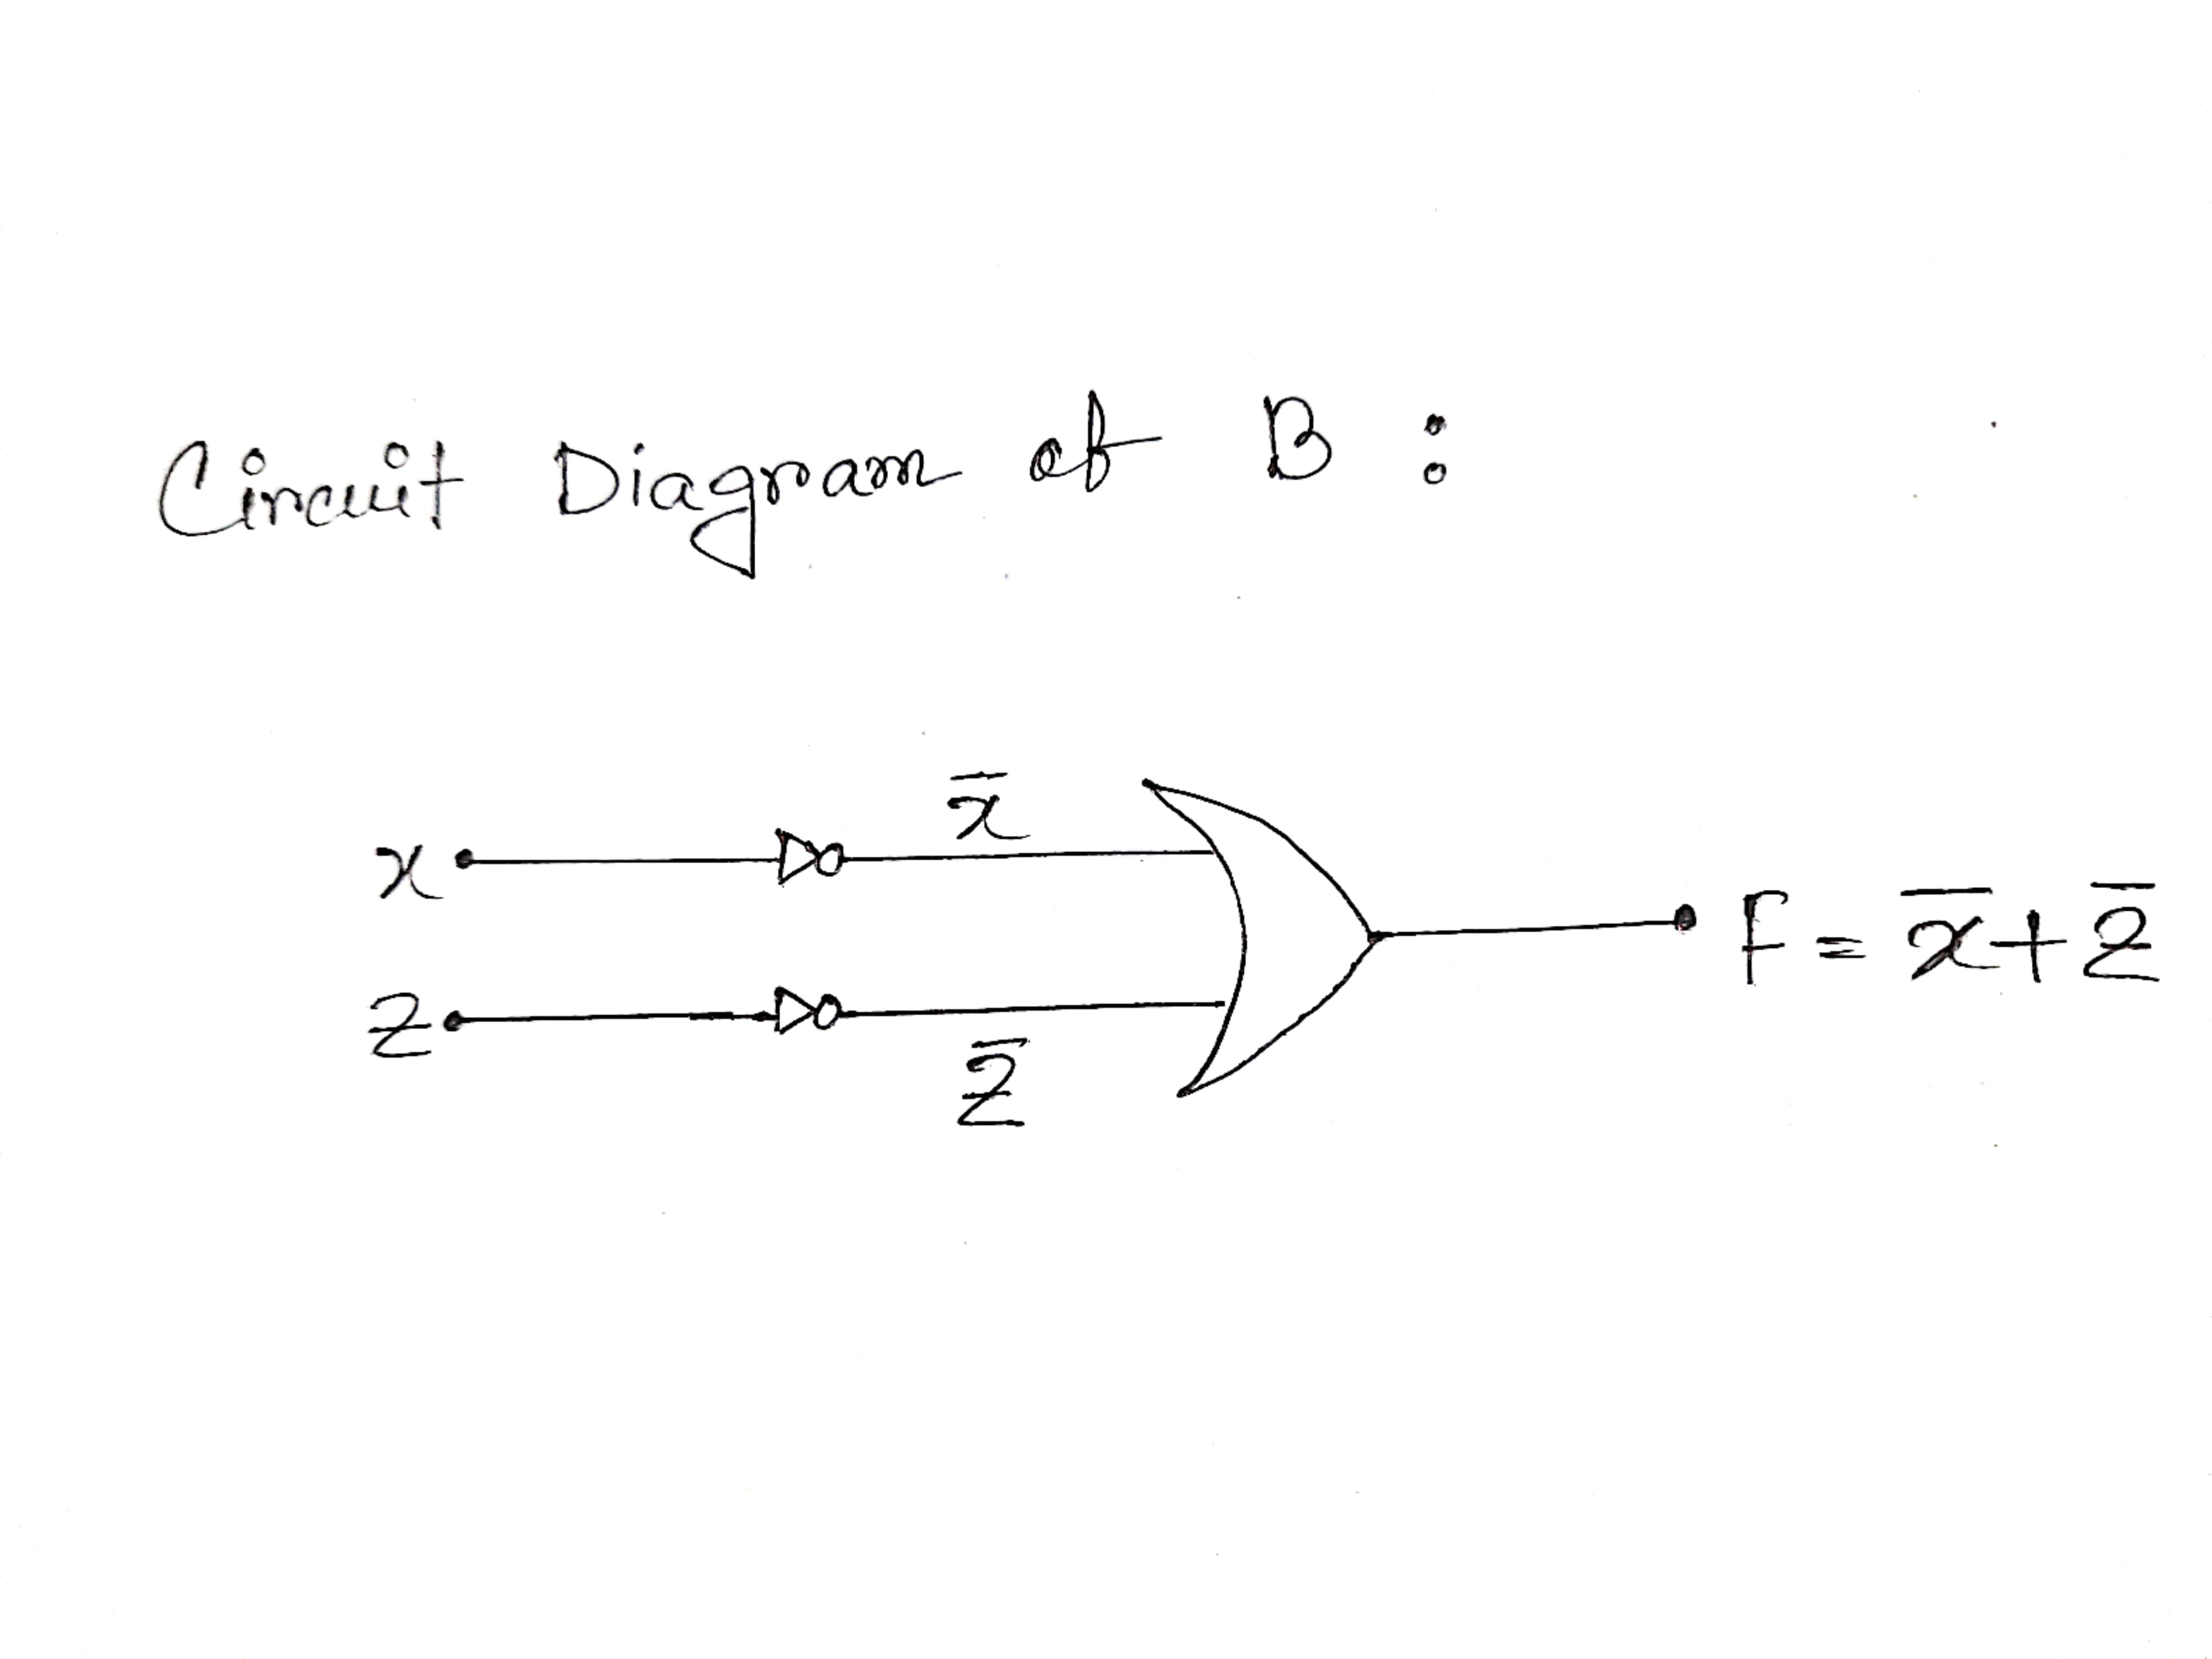 Circuit Diagram of B :
x̄
x
F = x̄ + z̄
z
z̄